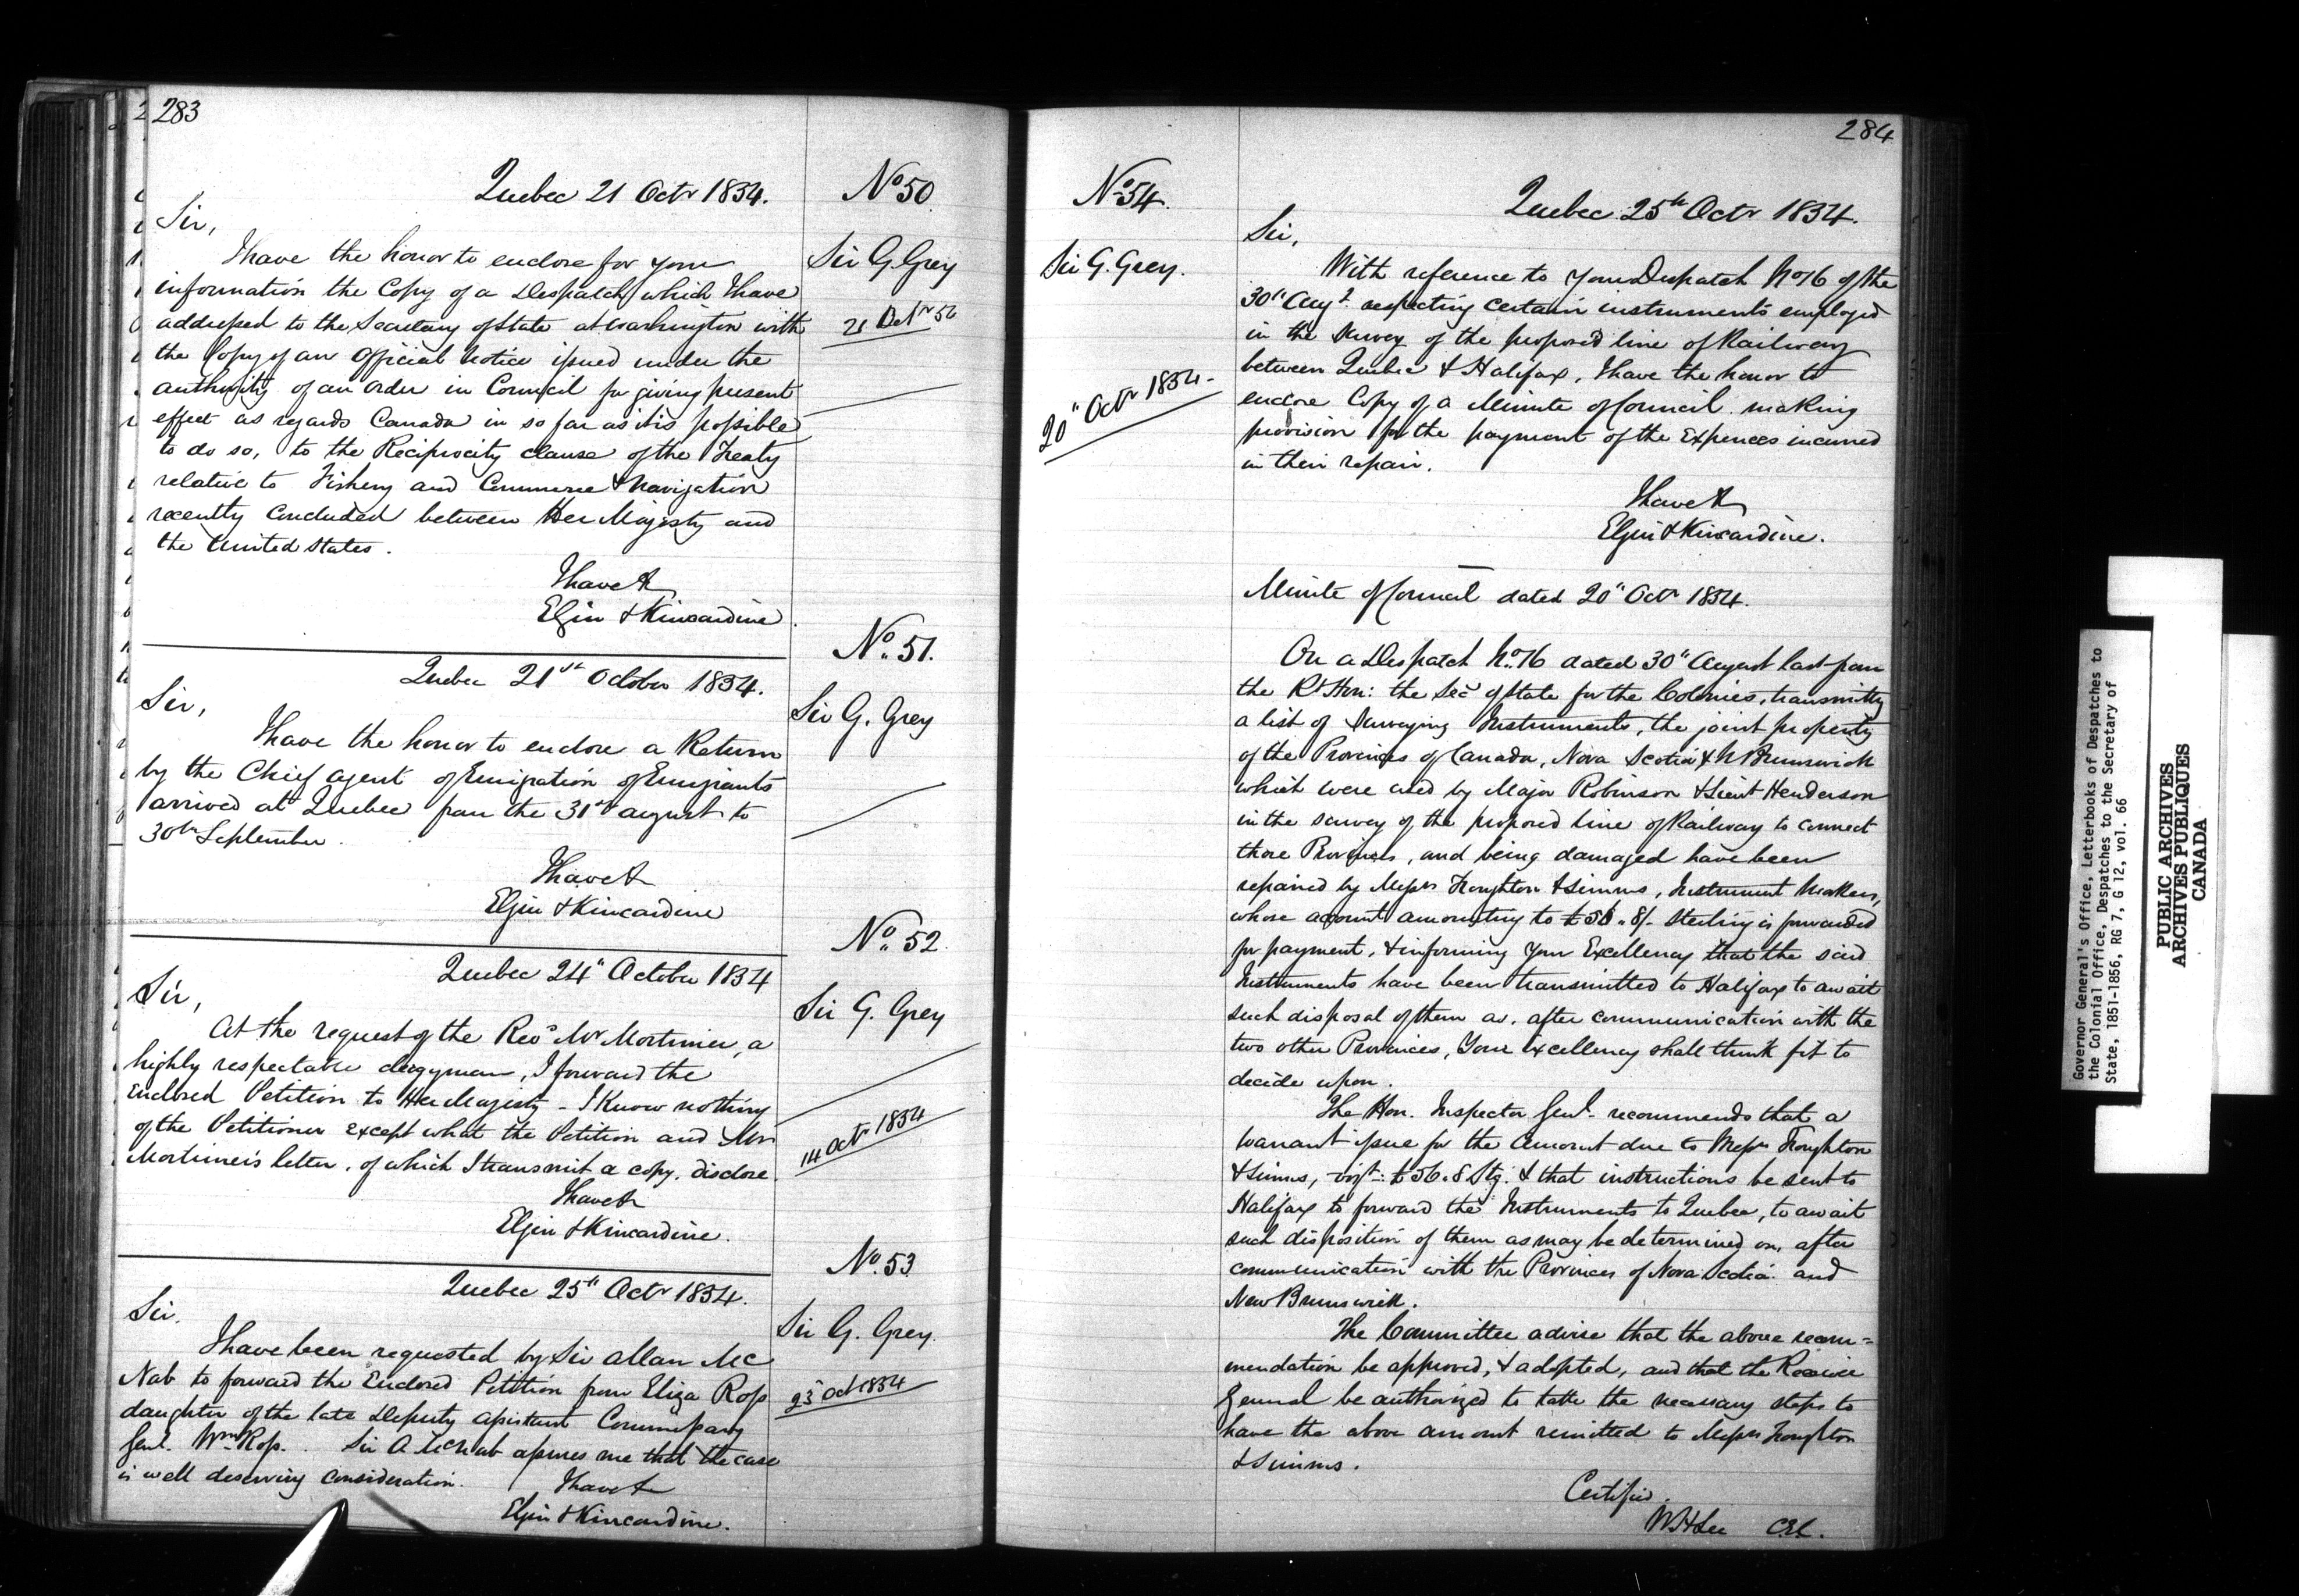 283
Quebec 21 Octr 1854.
Sir,
I have the honor to enclose for your
information the Copy of a Despatch which I have
addressed to the Secretary of State at Washington with
the Copy of an Official Notice issued under the
authority of an Order in Council for giving present
effect as regards Canada in so far as it is possible
to do so, to the Reciprocity clause of the Treaty
relative to Fishery and Commerce & Navigation
recently concluded between Her Majesty and
the United States.
I have &
Elgin & Kincardine
No 50
Sir G. Grey
21 Octr 54
Quebec 21st October 1854.
Sir,
I have the honor to enclose a Return
by the Chief Agent of Emigration of Emigrants
arrived at Quebec from the 31st August to
30th September.
I have &
Elgin & Kincardine
No. 51.
Sir G. Grey
Quebec 24" October 1854
Sir,
At the request of the Revd Mr Mortimer, a
highly respectable clergyman, I forward the
Enclosed Petition to Her Majesty - I Know nothing
of the Petitioner except what the Petition and Mr
Mortimer's letter, of which I transmit a copy, disclose.
I have &
Elgin & Kincardine.
No. 52.
Sir G. Grey
14 Octr 1854
Quebec 25" Octr 1854.
Sir.
I have been requested by Sir Allan Mc
Nab to forward the Enclosed Petition from Eliza Ross
daughter of the late Deputy Assistant Commissary
Genl. Wm Ross. Sir A McNab assures me that the case
is well deserving consideration.
I have &
Elgin & Kincardine.
No. 53
Sir G. Grey.
23 Oct 1854
284
No 54.
Sir G. Grey.
20" Octr 1854.
Quebec 25th Octr 1854.
Sir,
With reference to your Despatch No 16 of the
30" Augt. respecting certain instruments employed
in the Survey of the proposed line of Railway
between Quebec & Halifax, I have the honor to
enclose Copy of a Minute of Council making
provision for the payment of the Expences incurred
in their repair.
I have &
Elgin & Kincardine.
Minute of Council dated 20" Octr 1854.
On a Despatch No. 16 dated 30" August last from
the Rt Hon: the Secy of State for the Colonies, transmittg
a list of Surveying Instruments, the joint property
of the Provinces of Canada, Nova Scotia & N Brunswick
which were used by Major Robinson & Lieut Henderson
in the survey of the proposed line of Railway to connect
those Provinces, and being damaged have been
repaired by Messrs Troughton & Simms, Instrument Makers,
whose account amounting to £56 " 8/- Sterling is forwarded
for payment, & informing Your Excellency that the said
Instruments have been transmitted to Halifax to await
such disposal of them as, after communication with the
two other Provinces, Your Excellency shall think fit to
decide upon.
The Hon. Inspector Genl. recommends that a
Warrant issue for the Amount due to Messrs Troughton
& Simms, vizt: £56.8 Stg. & that instructions be sent to
Halifax to forward the Instruments to Quebec, to await
such disposition of them as may be determined on, after
communication with the Provinces of Nova Scotia and
New Brunswick.
The Committee advise that the above recom=
mendation be approved, & adopted, and that the Receiver
General be authorized to take the necessary steps to
have the above amount remitted to Messrs Troughton
& Simms.
Certified.
W H Lee C.E.C.
Governor General's Office, Letterbooks of Despatches to
the Colonial Office, Despatches to the Secretary of
State, 1851-1856, RG 7, G 12, vol. 66
PUBLIC ARCHIVES
ARCHIVES PUBLIQUES
CANADA